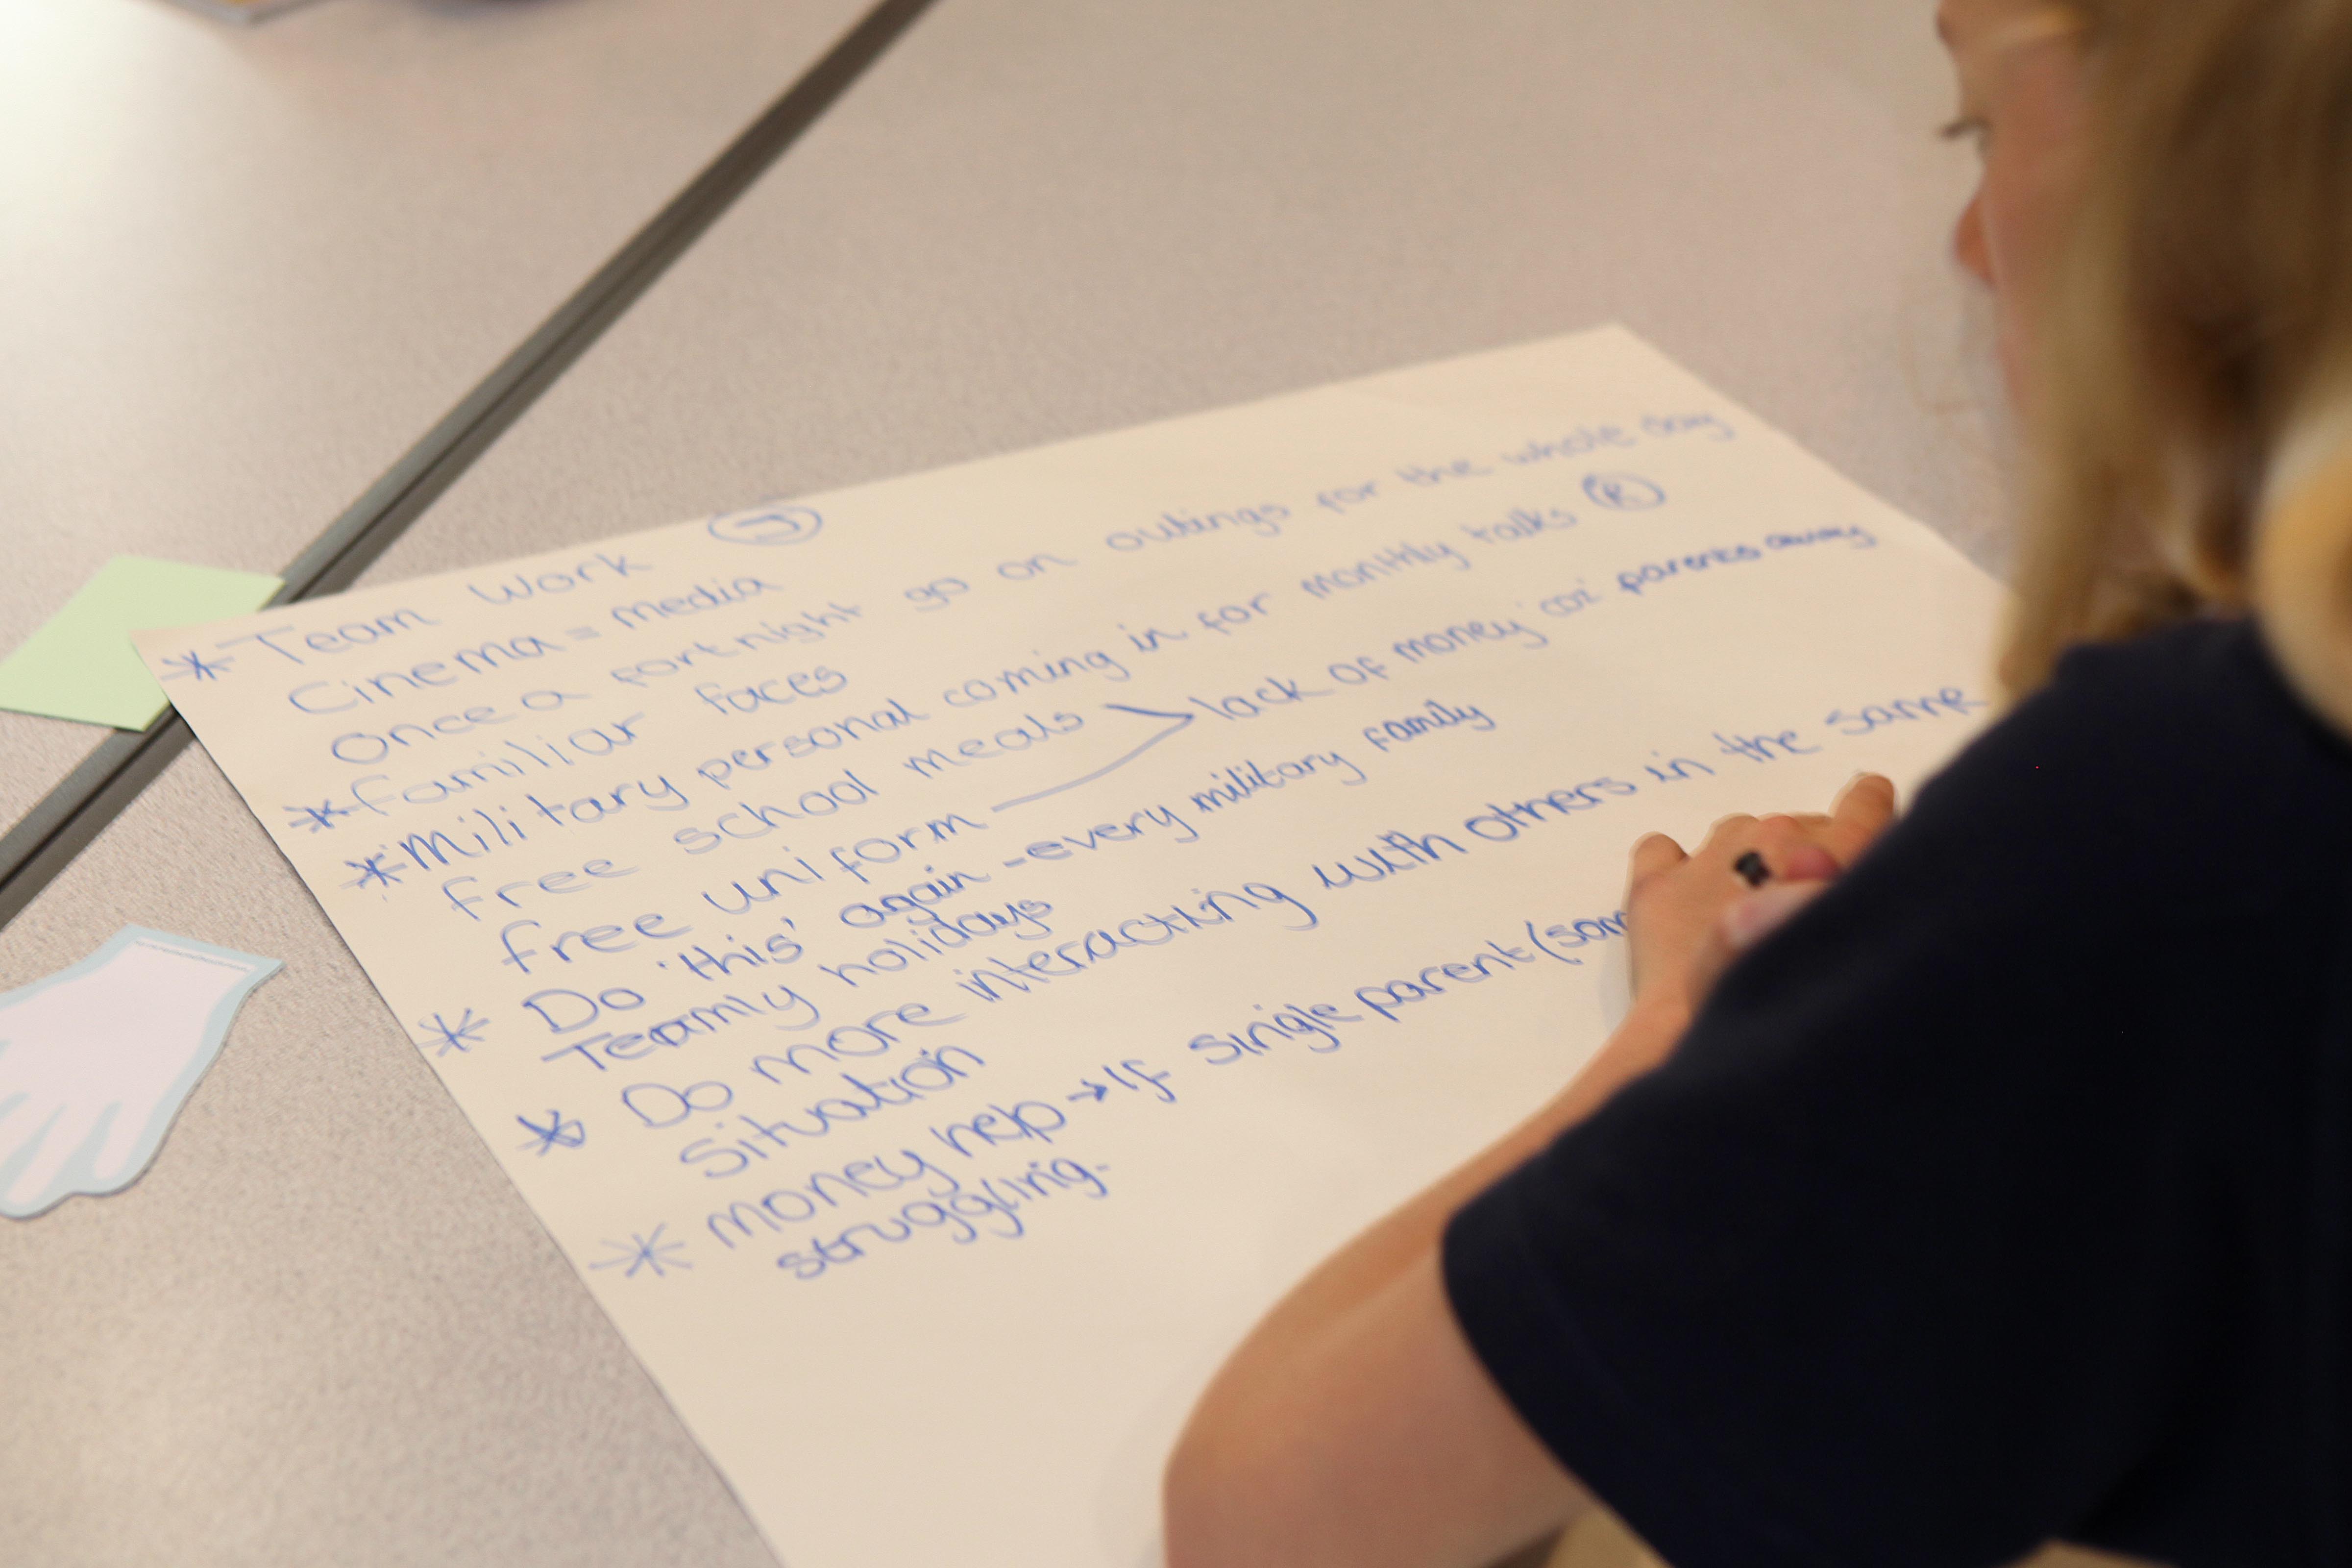 * Team Work J
Cinema = media
once a fortnight go on outings for the whole day
* familiar faces
* Military personal coming in for monthly talks R
free school meals > lack of money coz parents away
free uniform
* Do 'this' again - every military family
Teamly holidays
* Do more interacting with others in the same
situation
* money help → if single parent (som
struggling.